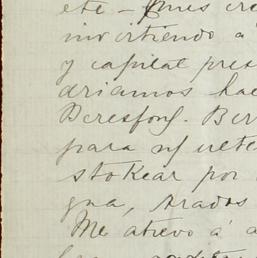 ete - Pues cre
invirtiendo á
y capital pres
driamos hac
Beresford. Ber
para
stokear por
gua, arados
Me atrevo á a